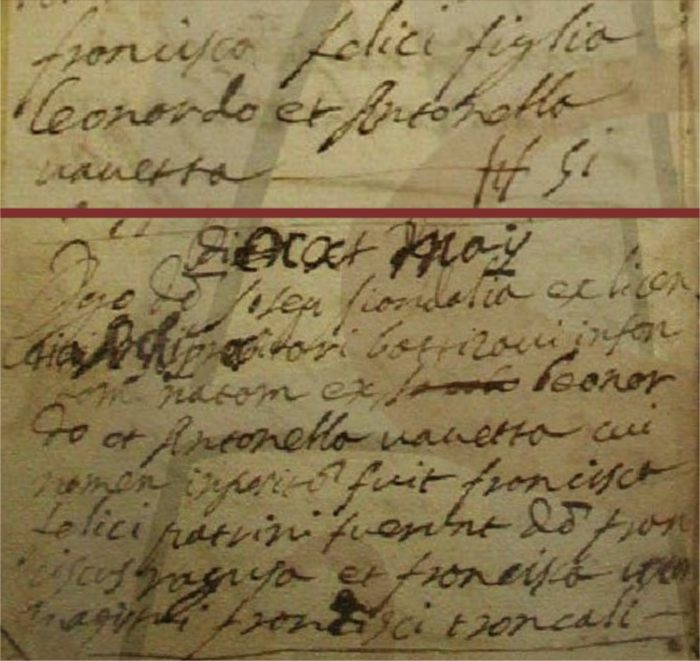 francisca felici figlia
leonardo et Antonella
vavetta # 51
Die et May
Ego Do Joseph Scondalia ex licen
baptizavi infan
natam ex leonar
do et Antonella vavetta cui
nomen impositum fuit francisca
felici patrini fuerunt Do fran
ciscus ragusa et francisca
magistri francisci troncali